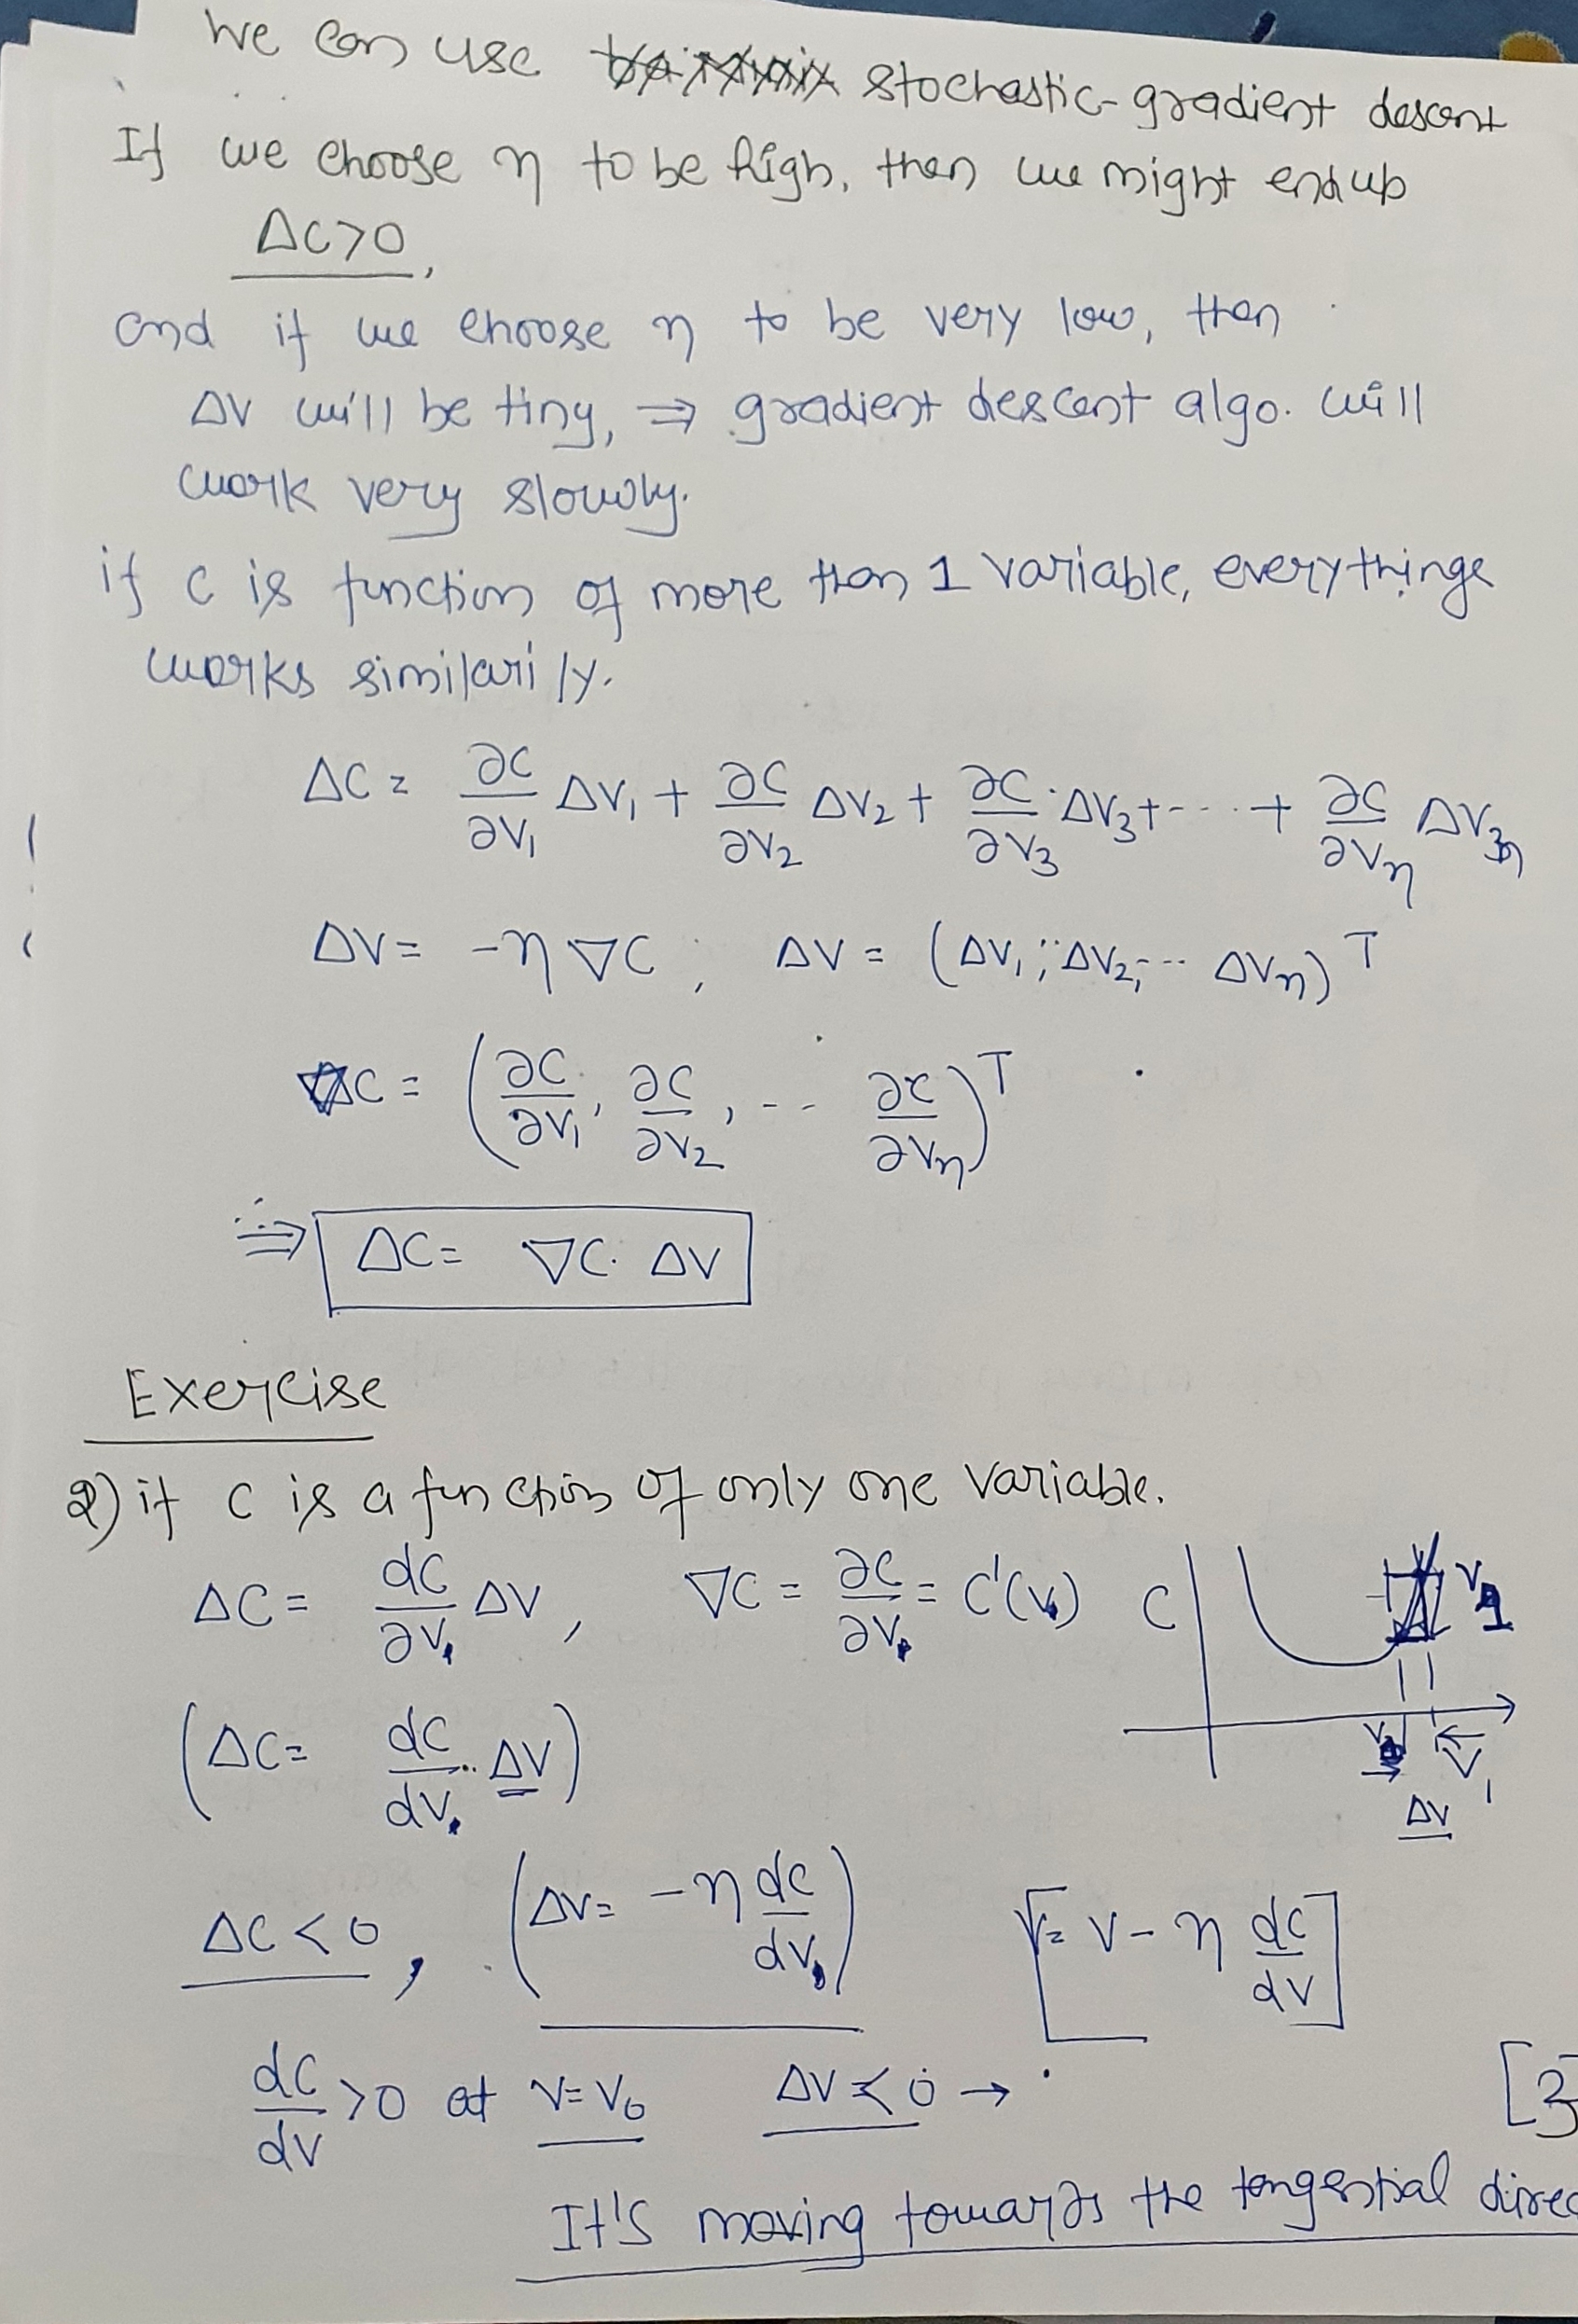 We can use stochastic-gradient descent
If we choose η to be high, then we might end up
ΔC>0,
and if we choose η to be very low, then
ΔV will be tiny, ⇒ gradient descent algo. will
work very slowly.
if C is function of more than 1 variable, everythings
works similarily.
ΔC = ∂C/∂V₁ ΔV₁ + ∂C/∂V₂ ΔV₂ + ∂C/∂V₃ · ΔV₃ + ---- + ∂C/∂Vₙ ΔVₙ
ΔV = -η ∇C, ΔV = (ΔV₁, ΔV₂, --- ΔVₙ)ᵀ
∇C = (∂C/∂V₁, ∂C/∂V₂, -- ∂C/∂Vₙ)ᵀ
∴ ⇒ ΔC = ∇C. ΔV
Exercise
2) if C is a function of only one variable.
ΔC = dC/∂V ΔV, ∇C = ∂C/∂V = C'(V)
C
V₁
(ΔC = dC/dV . ΔV)
V₁
ΔV
ΔC < 0, (ΔV = -η dC/dV) [V = V - η dC/dV]
dC/dV >0 at V=V₀ ΔV < 0 →
[3
It's moving towards the tangential direc